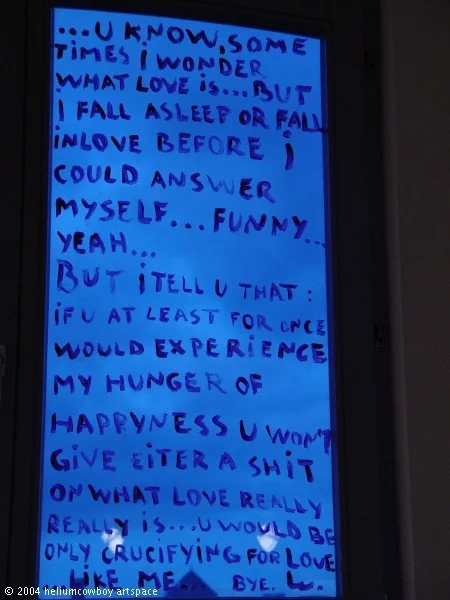 ...U KNOW, SOME
TiMES i WONDER
WHAT LOVE iS...BUT
I FALL ASLEEP OR FALL
iNLOVE BEFORE i
COULD ANSWER
MYSELF... FUNNY...
YEAH...
BUT iTELL U THAT :
iF U AT LEAST FOR ONCE
WOULD EXPERiENCE
MY HUNGER OF
HAPPYNESS U WON'T
GiVE EiTER A SHiT
ON WHAT LOVE REALLY
REALLY iS...U WOULD BE
ONLY CRUCiFYiNG FOR LOVE
LiKE ME... BYE. L.
© 2004 heliumcowboy artspace